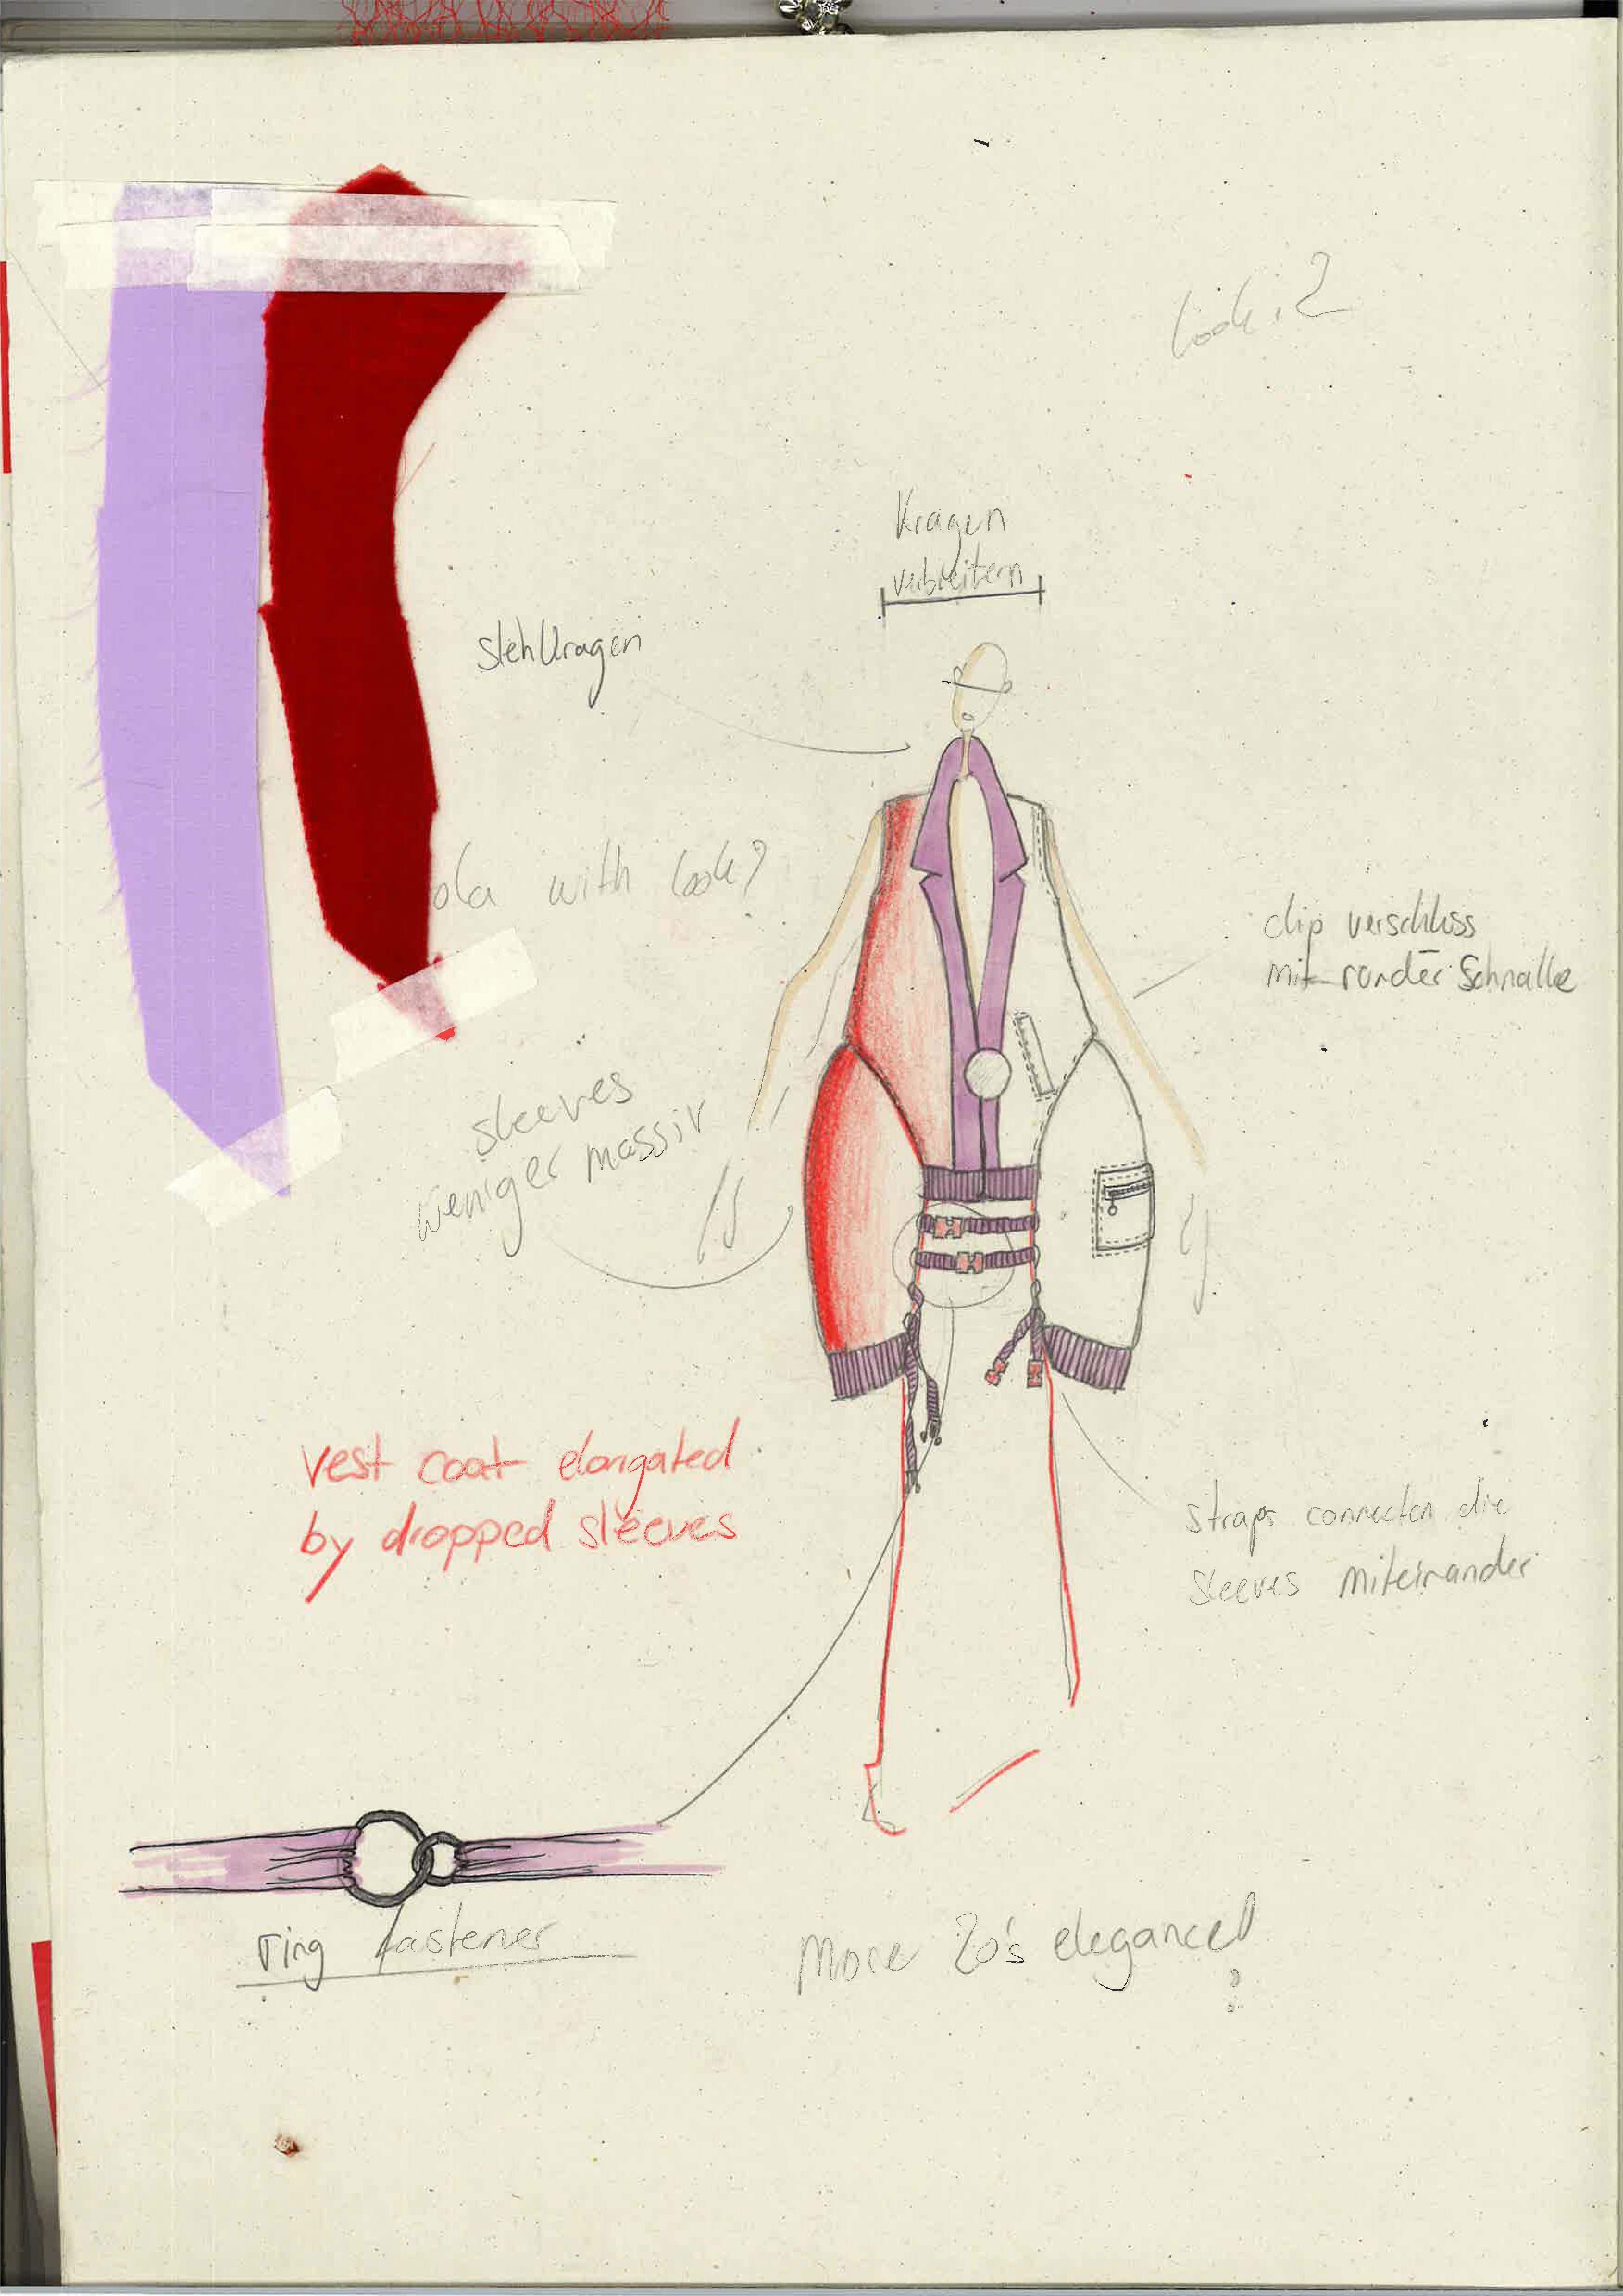 look. 2
Kragen
verbreitern
Stehkragen
with look?
clip verschluss
mit runder Schnalle
sleeves
weniger massiv
vest coat elongated
by dropped sleeves
straps connecten die
sleeves miteinander
ring fastener
More 20's elegance!